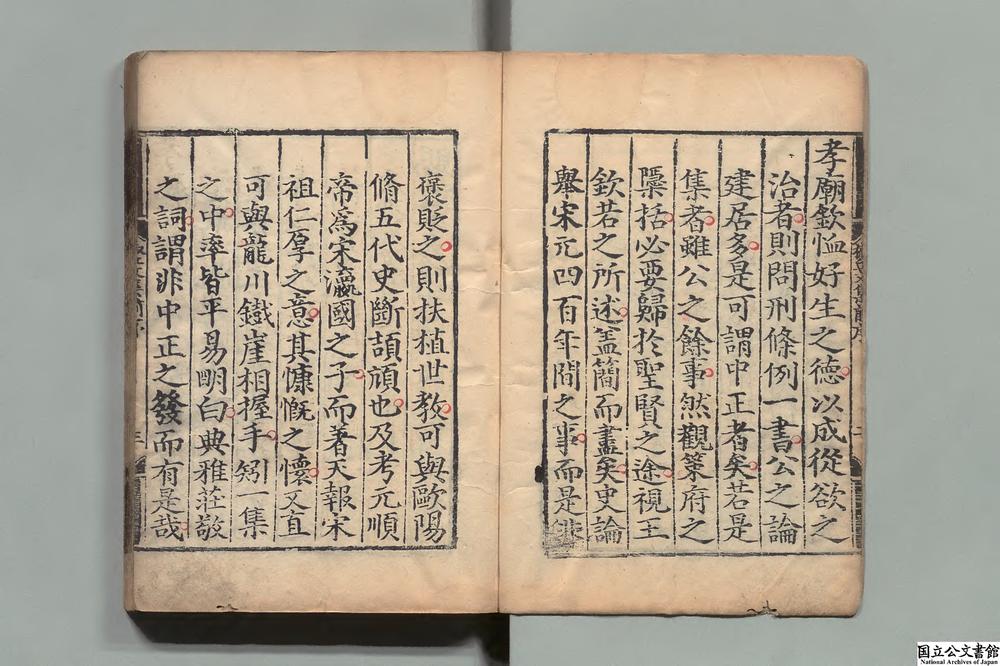 孝廟欽恤好生之德以成從欲之
治者則問刑條例一書公之論
建居多是可謂中正者矣若是
集者雖公之餘事然觀策府之
檃括必要歸於聖賢之途視王
欽若之所述盖簡而盡矣史論
舉宋元四百年間之事而是非
褒貶之則扶植世教可與歐陽
脩五代史斷頡頏也及考元順
帝爲宋瀛國之子而著天報宋
祖仁厚之意其慷慨之懷又直
可與龍川鐵崖相握手矧一集
之中率皆平易明白典雅莊敬
之詞謂非中正之發而有是哉
国立公文書館
National Archives of Japan